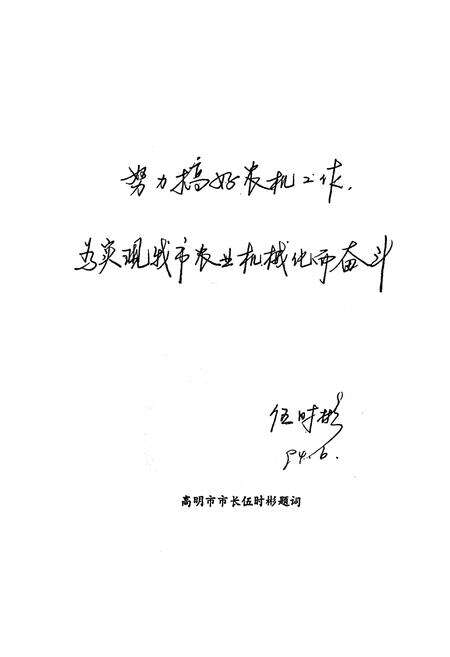 努力搞好农机工作，
为实现我市农业机械化而奋斗
伍时彬
94.6.
高明市市长伍时彬题词